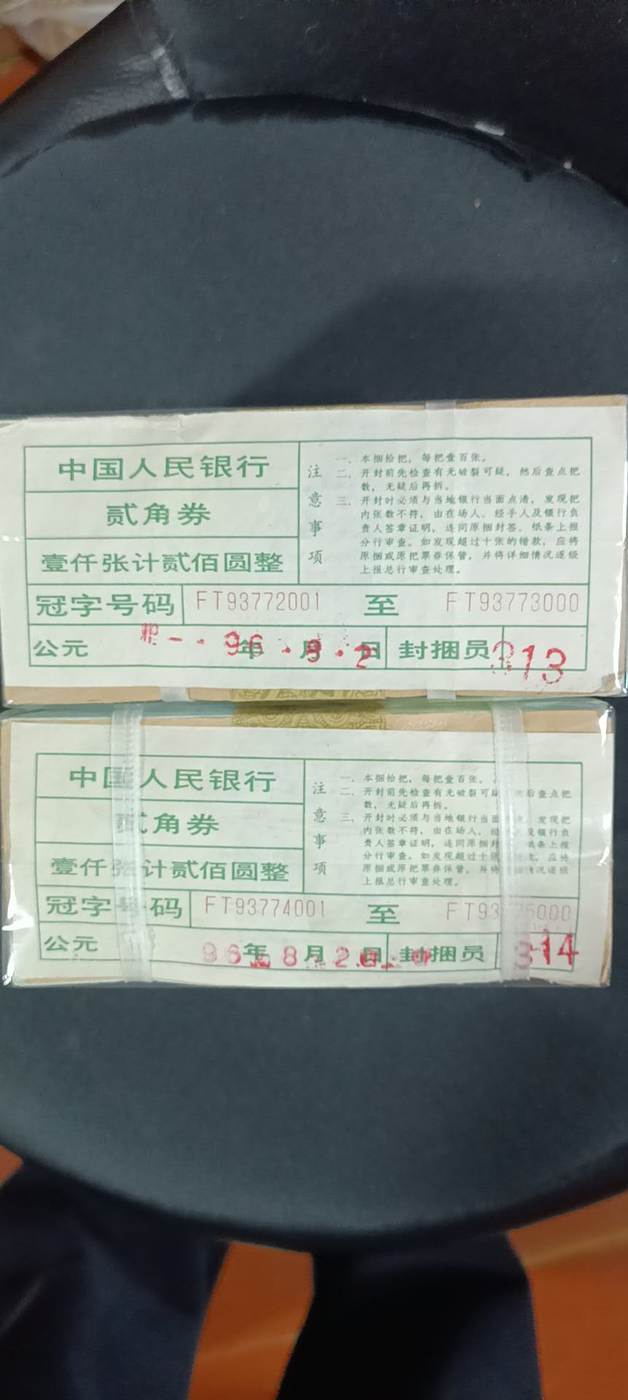 中国人民银行
贰角券
壹仟张计贰佰圆整
注意事项
一、本捆拾把，每把壹百张。
二、开封前先检查有无破裂可疑，然后查点把
数，无疑后再拆。
三、开封时必须与当地银行当面点清，发现把
内张数不符，由在场人、经手人及银行负
责人签章证明，连同原捆封签、纸条上报
分行审查。如发现超过十张的错款，应将
原捆或原把票券保管，并将详细情况逐级
上报总行审查处理。
冠字号码 FT93772001 至 FT93773000
公元 96年8月2日 封捆员 313
中国人民银行
贰角券
壹仟张计贰佰圆整
注意事项
一、本捆拾把，每把壹百张。
二、开封前先检查有无破裂可疑 后查点把
数，无疑后再拆。
三、开封时必须与当地银行当面 发现把
内张数不符，由在场人、 及银行负
责人签章证明，连同原捆封 纸条上报
分行审查。如发现超过十张 应将
原捆或原把票券保管，并将 情况逐级
上报总行审查处理。
冠字号码 FT93774001 至 FT93 5000
公元 96年8月20日 封捆员 314